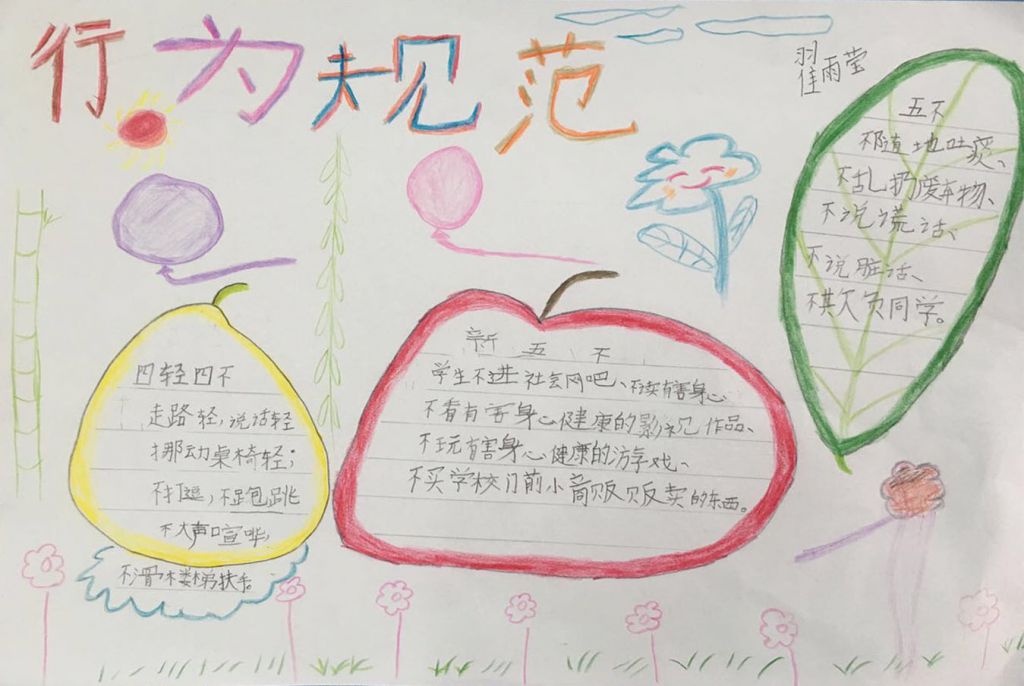 行为规范
翟雨莹
五不
不随地吐痰、
不乱扔废弃物、
不说谎话、
不说脏话、
不欺负同学。
四轻四不
走路轻,说话轻
挪动桌椅轻;
不打逗,不跑跳
不大声喧哗,
不滑楼梯扶手。
新五不
学生不进社会网吧、不读有害身心
不看有害身心健康的影视作品、
不玩有害身心健康的游戏、
不买学校门前小商贩贩卖的东西。